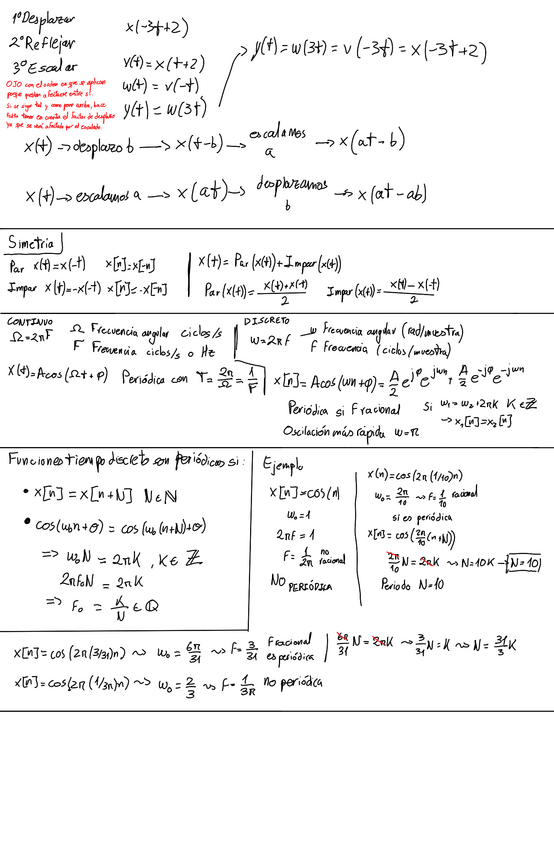 1º Desplazar
2º Reflejar
3º Escalar
OJO con el orden en que se aplican
porque pueden afectarse entre sí.
Si se sigue tal y como pone arriba, hace
falta tener en cuenta el factor de desplazo
ya que se verá afectado por el escalado.
x(-3t+2)
v(t) = x(t+2)
w(t) = v(-t)
y(t) = w(3t)
y(t) = w(3t) = v(-3t) = x(-3t+2)
x(t) → desplazo b → x(t-b) → escalamos a → x(at-b)
x(t) → escalamos a → x(at) → desplazamos b → x(at-ab)
Simetria
Par x(t)=x(-t) x[n]=x[-n]
Impar x(t)=-x(-t) x[n]=-x[-n]
x(t) = Par(x(t)) + Impar(x(t))
Par(x(t)) = x(t)+x(t)/2 Impar(x(t)) = x(t)-x(-t)/2
CONTINUO
Ω=2πF
Ω Frecuencia angular ciclos/s
F Frecuencia ciclos/s o Hz
x(t)=Acos(Ωt+φ) Periódica con T=2π/Ω=1/F
DISCRETO
w=2πF
w Frecuencia angular (rad/muestra)
f Frecuencia (ciclos/muestra)
x[n]=Acos(wn+φ)=A/2 e^jφ e^jwn + A/2 e^-jφ e^-jwn
Periódica si F racional Si w₁=w₂+2πK K∈ℤ
→ x₁[n]=x₂[n]
Oscilación más rápida w=π
Funciones tiempo discreto son periódicas si:
• x[n] = x[n+N] N∈ℕ
• cos(w₀n+θ) = cos(w₀(n+N)+θ)
⇒ w₀N = 2πK, K∈ℤ
2πF₀N = 2πK
⇒ F₀ = K/N ∈ ℚ
Ejemplo
x[n]=cos(n)
w₀=1
2πF = 1
F=1/2π no racional
NO PERIÓDICA
x(n)=cos(2π(1/10)n)
w₀=2π/10 ⇝ F=1/10 racional
si es periódica
x[n]=cos(2π/10(n+N))
2π/10 N=2πK ⇝ N=10K → N=10
Periodo N=10
x[n]=cos(2π(3/31)n) ⇝ w₀=6π/31 ⇝ F=3/31 F racional es periódica
6π/31 N=2πK ⇝ 3/31 N=K ⇝ N=31/3 K
x[n]=cos(2π(1/3π)n) ⇝ w₀=2/3 ⇝ F=1/3π no periódica